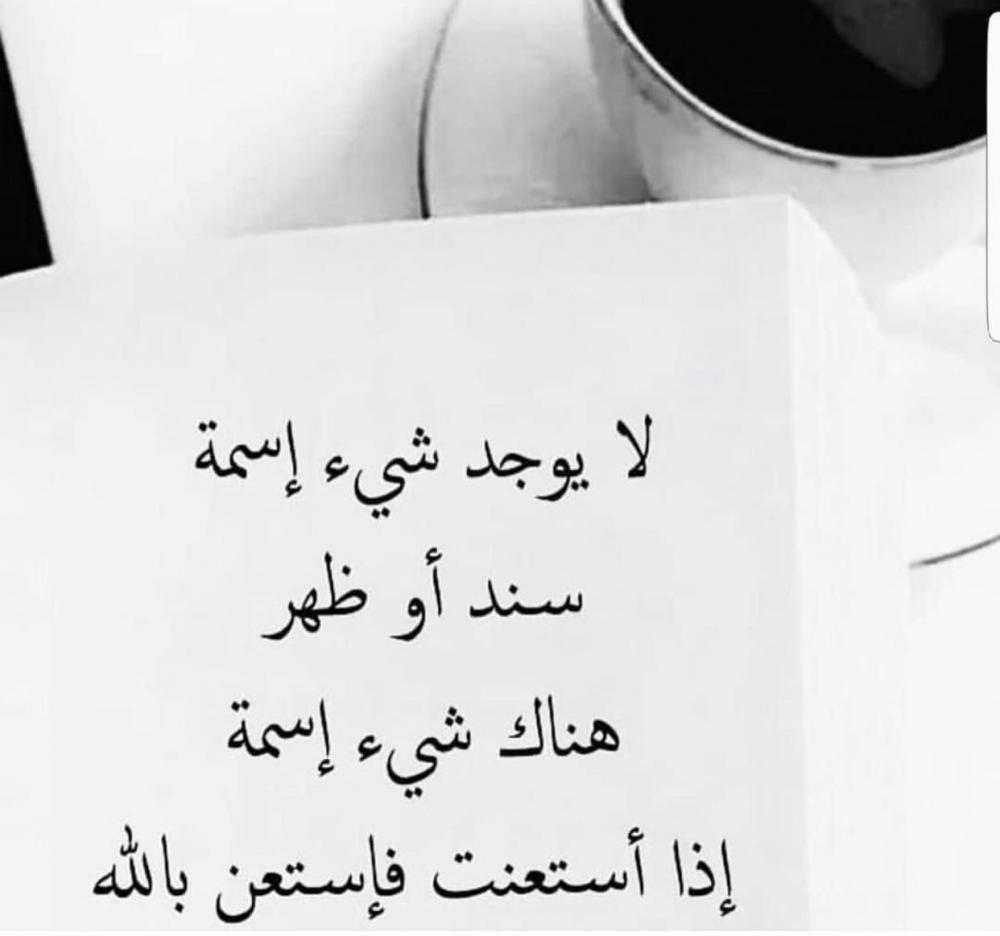 لا يوجد شيء إسمة
سند أو ظهر
هناك شيء إسمة
إذا أستعنت فإستعن بالله